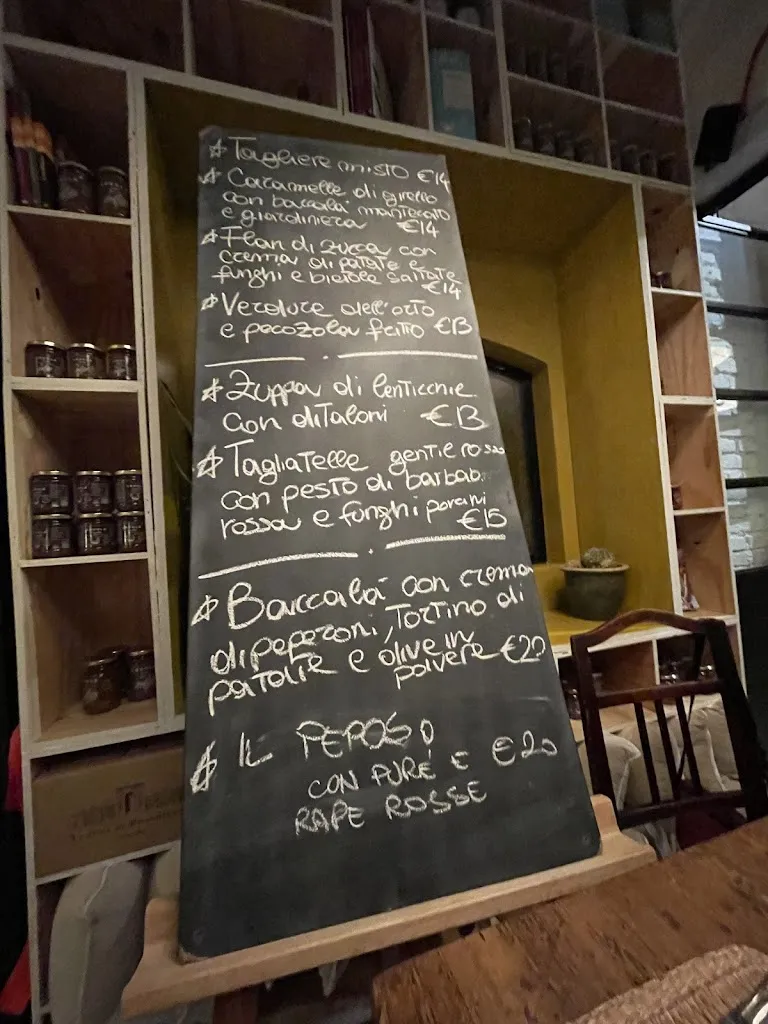 Tagliere misto €14
Caramelle di girello
con baccalà mantecato
e giardiniera €14
Flan di zucca con
crema di patate e
funghi e bietole saltate
€14
Verdure dell'orto
e pecozola fritto €13
Zuppa di lenticchie
con ditaloni €13
Tagliatelle gentil rosso
con pesto di barbab.
rossa e funghi porcini
€15
Baccalà con crema
di peperoni, tortino di
patate e olive in
polvere €20
IL PEPOSO
CON PURÉ E €20
RAPE ROSSE